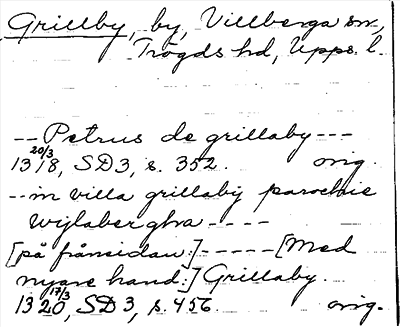 Grillby, by, Villberga sn,
Trögds hd, Upps. l.
-- Petrus de grillaby ---
20/3
1318, SD 3, s. 352. orig.
-- in villa grillabij parochie
wijlabergha ----
[på frånsidan:] ----- [Med
nyare hand:] Grillaby.
17/3
1320, SD 3, s. 456. orig.